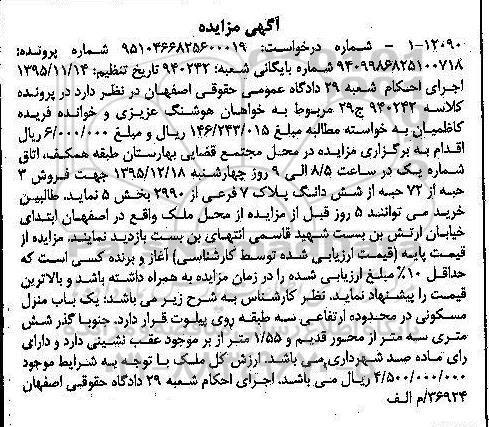 آگهی مزایده
۱-۱۲۰۹۰ - شماره درخواست: ۹۵۱۰۴۶۶۸۲۵۶۰۰۰۱۹ شماره پرونده:
۹۴۰۹۹۸۶۸۲۵۱۰۰۷۱۸ شماره بایگانی شعبه: ۹۴۰۲۴۲ تاریخ تنظیم: ۱۳۹۵/۱۱/۱۴
اجرای احکام شعبه ۲۹ دادگاه عمومی حقوقی اصفهان در نظر دارد در پرونده
کلاسه ۹۴۰۲۴۲ ج۲۹ مربوط به خواهان هوشنگ عزیزی و خوانده فریده
کاظمیان به خواسته مطالبه مبلغ ۱۴۶/۲۴۳/۰۱۵ ریال و مبلغ ۶/۰۰۰/۰۰۰ ریال
اقدام به برگزاری مزایده در محل مجتمع قضایی بهارستان طبقه همکف، اتاق
شماره یک در ساعت ۸/۵ الی ۹ روز چهارشنبه ۱۳۹۵/۱۲/۱۸ جهت فروش ۳
حبه از ۷۲ حبه از شش دانگ پلاک ۷ فرعی از ۲۹۹۰ بخش ۵ نماید. طالبین
خرید می توانند ۵ روز قبل از مزایده از محل ملک واقع در اصفهان ابتدای
خیابان ارتش بن بست شهید قاسمی انتهای بن بست بازدید نمایند. مزایده از
قیمت پایه (قیمت ارزیابی شده توسط کارشناسی) آغاز و برنده کسی است که
حداقل ۱۰٪ مبلغ ارزیابی شده را در زمان مزایده به همراه داشته باشد و بالاترین
قیمت را پیشنهاد نماید. نظر کارشناس به شرح زیر می باشد: یک باب منزل
مسکونی در محدوده ارتفاعی سه طبقه روی پیلوت قرار دارد. جنوبا گذر شش
متری سه متر از محور قدیم و ۱/۵۵ متر از بر موجود عقب نشینی دارد و دارای
رای ماده صد شهرداری می باشد. ارزش کل ملک با توجه به شرایط موجود
۴/۵۰۰/۰۰۰/۰۰۰ ریال می باشد. اجرای احکام شعبه ۲۹ دادگاه حقوقی اصفهان
۳۶۹۲۴/م الف